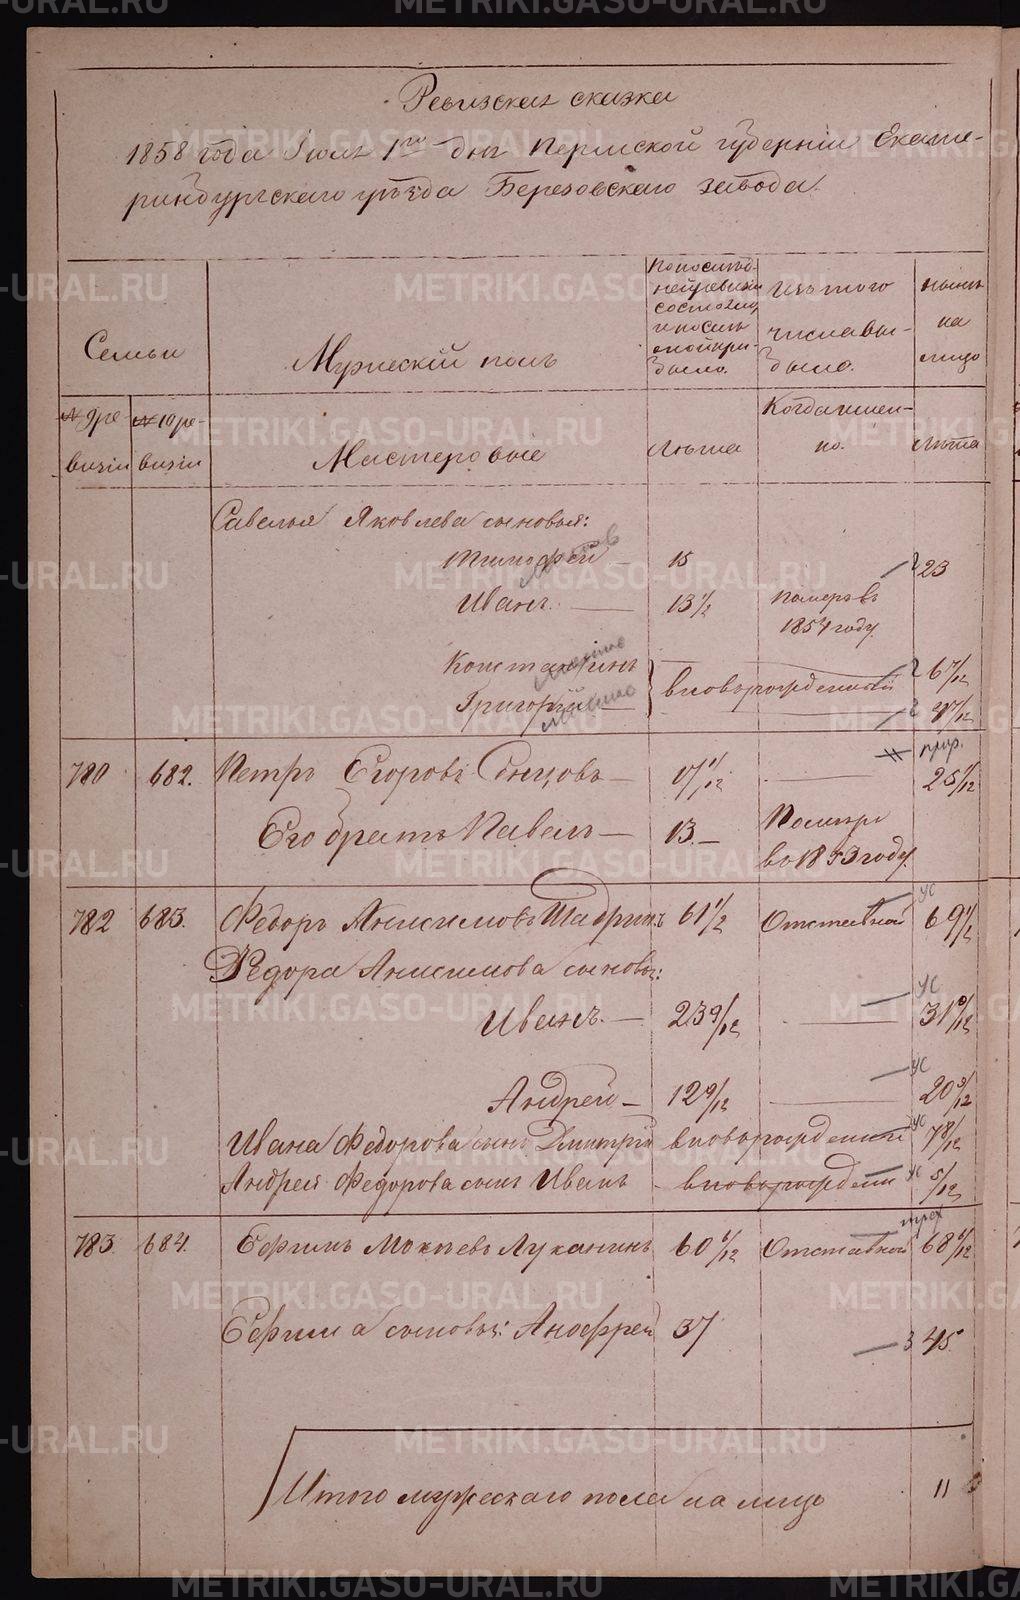 Ревизская сказка
1858 года Июля 1го дня Пермской губернии Екате-
ринбургскаго уѣзда Березовскаго завода.
Семьи
Мужескій полъ
По послѣд-
ней ревизіи
состояло
и послѣ
оной при-
было.
Изъ того
числа вы-
было.
нынѣ
на
лицо
№ 9 ре-
визіи
№ 10 ре-
визіи
Мастеровые
Лѣта
Когда имен-
но.
Лѣта
Савелья Яковлева сыновья:
Тимофей 15 23
Иванъ. 13 1/2 Померъ въ
1854 году.
Константинъ 6 7/12
Григорій вновь рожденный
780 682. Петръ Егоровъ 17 1/12 25 1/12
Его братъ Павелъ 13. Померъ
въ 1853 году.
782 683. Федоръ Анисимовъ Шадринъ 61 1/2 Отставной 69 1/2
ус
Федора Анисимова сыновья:
ус
Иванъ. 23 9/12 31 9/12
ус
Андрей 12 9/12 20 9/12
Ивана Федорова сынъ Дмитрій вновь рожденный ус 7 8/12
Андрея Федорова сынъ Иванъ вновь рожденный ус 5/12
783. 684. Ефимъ Мокѣевъ Луканинъ 60 1/12 Отставной 68 1/12
Ефима сыновья: Анофрей 37 3 45
Итого мужескаго пола на лицо 11
METRIKI.GASO-URAL.RU